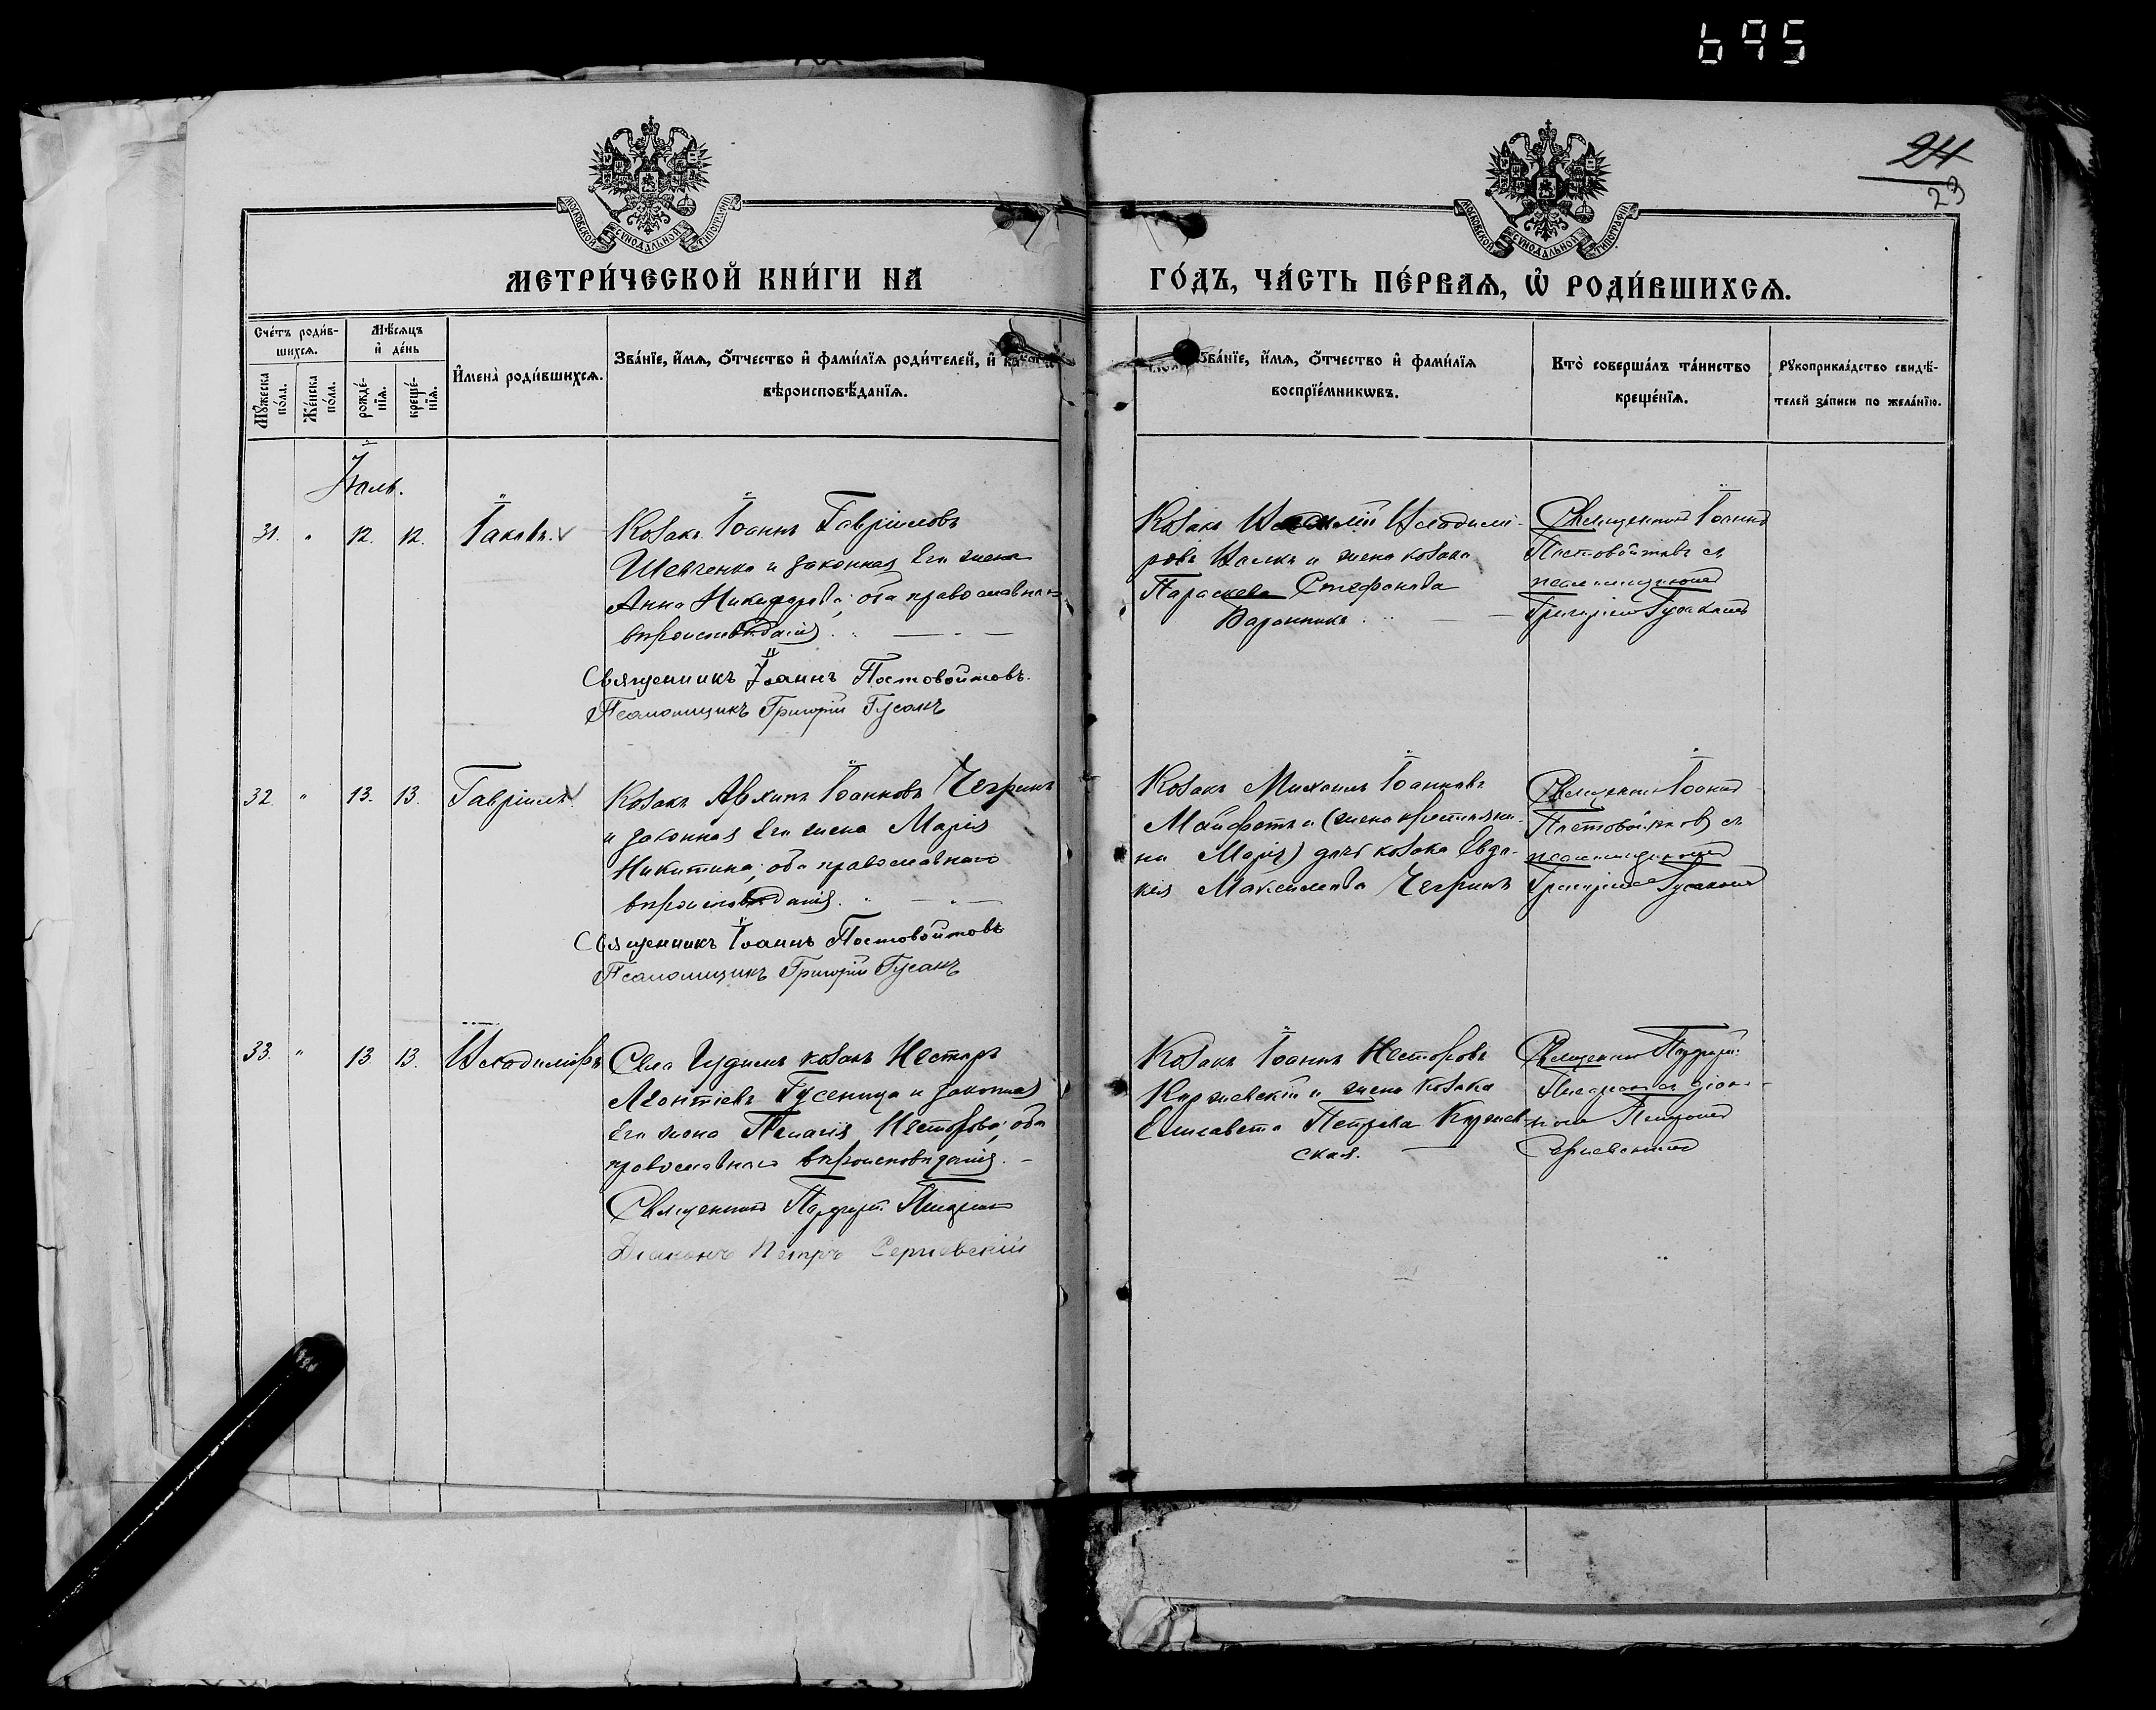 695
24
23
МОСКОВСКОЙ СѴНОДАЛЬНОЙ ТИПОГРАФІИ
МОСКОВСКОЙ СѴНОДАЛЬНОЙ ТИПОГРАФІИ
МЕТРИ́ЧЕСКОЙ КНИ́ГИ НА
ГО́ДЪ, ЧА́СТЬ ПЕ́РВАѦ, Ѽ РОДИ́ВШИХСѦ.
Сче́тъ роди́в-
шихсѧ.
Мꙋжеска по́ла.
Же́нска по́ла.
Мѣ́сѧцъ
и҆ де́нь
рожде́-
нїѧ.
креще́-
нїѧ.
И҆мена̀ роди́вшихсѧ.
Зва́нїе, и҆́мѧ, ѻ҆́тчество и҆ фами́лїѧ роди́телей, и҆ како́гѡ
вѣроисповѣ́данїѧ.
Зва́нїе, и҆́мѧ, ѻ҆́тчество и҆ фами́лїѧ
воспрїе́мникѡвъ.
Кто̀ соверша́лъ та́инство
креще́нїѧ.
Рꙋкоприкла́дство свидѣ́-
телей за́писи по жела́нїю.
Іюль.
31. " 12. 12. Іаковъ.
Козакъ Іоаннъ Гавріиловъ
Шевченко и законная Его жена
Анна Никифорова; оба православнаго
вѣроисповѣданія.
Священникъ Іоаннъ Постовойтовъ.
Псаломщикъ Григорій Гусакъ
Козакъ Владимі-
ровъ и жена козака
Параскева Стефанова
Священникъ Іоаннъ
Постовойтовъ съ
псаломщикомъ
Григоріемъ Гусакомъ
32. " 13. 13. Гавріилъ
Козакъ Архипъ Іоанновъ Чегринъ
и законная Его жена Марія
Никитина; оба православнаго
вѣроисповѣданія.
Священникъ Іоаннъ Постовойтовъ
Псаломщикъ Григорій Гусакъ
Козакъ Михаилъ Іоанновъ
Майфетъ и (жена крестьяни-
на Марія) дочь козака Евдо-
кія Максимова Чегринъ
Священникъ Іоаннъ
Постовойтовъ съ
псаломщикомъ
Григоріемъ Гусакомъ
33. " 13. 13. Владиміръ
Села козакъ Несторъ
Леонтіевъ Гусеница и законная
Его жена Пелагія Несторова; оба
православнаго вѣроисповѣданія.
Священникъ
Діаконъ Петръ Сергіевскій
Козакъ Іоаннъ Несторовъ
и жена козака
Елисавета Петрова
ская.
Священникъ
съ діако-
номъ Петромъ
Сергіевскимъ